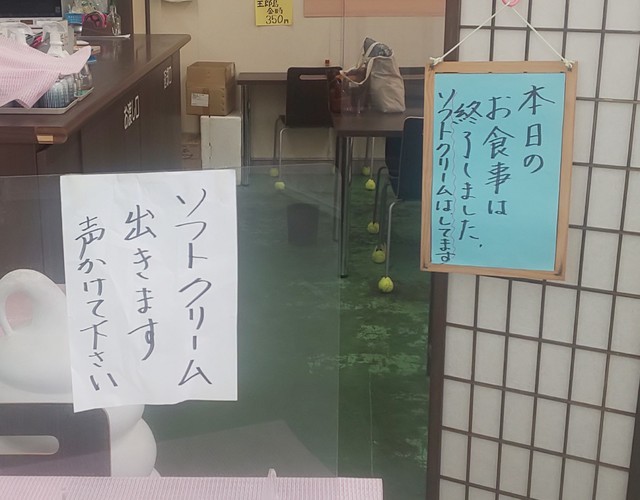 本日の
お食事は
終了しました.
ソフトクリームはしてます
ソフトクリーム
出きます
声かけて下さい
金時
350円